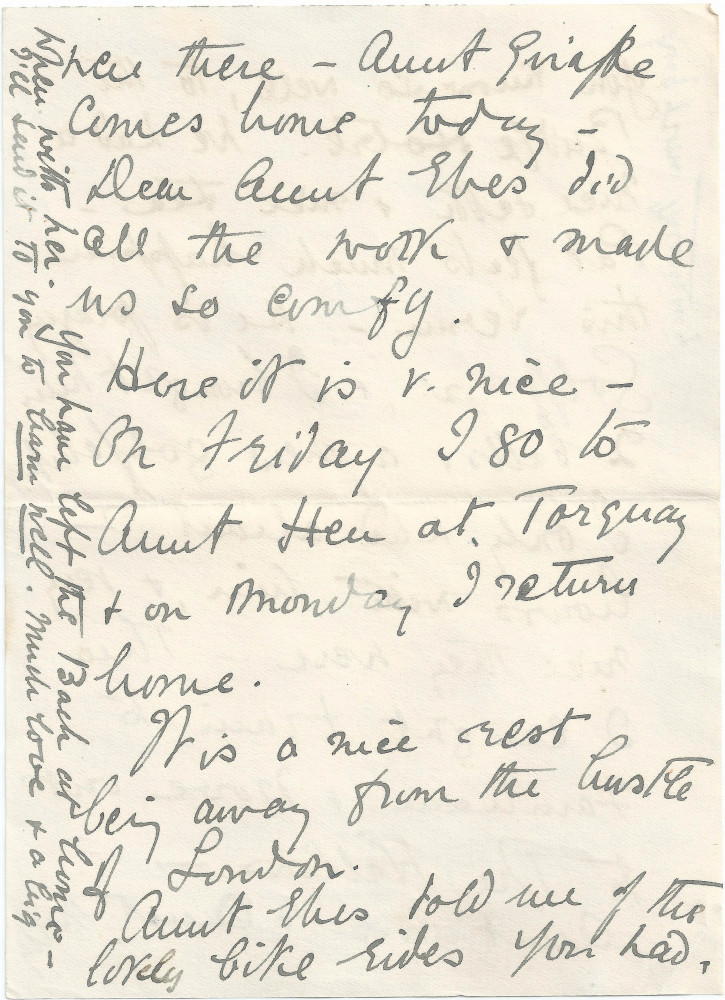 were there – Aunt
comes home today –
Dear Aunt Ebes did
all the work & made
us so comfy.
Here it is v. nice –
On Friday I go to
Aunt Hen at Torquay
& on Monday I return
home.
It is a nice rest
being away from the hustle
of London.
Aunt Ebes told me of the
lovely bike rides you had,
when with her. You have left the Bach at home –
I'll send it to you to learn well. Much love & a big